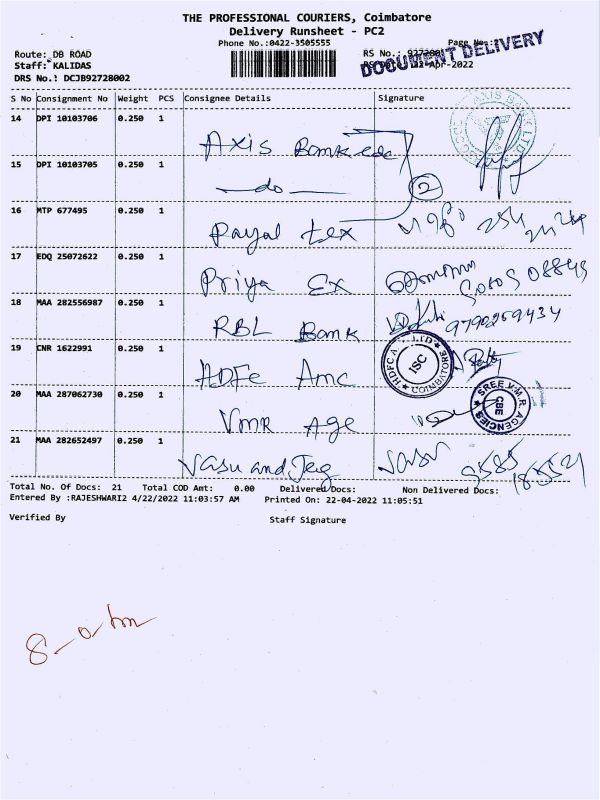 THE PROFESSIONAL COURIERS, Coimbatore
Delivery Runsheet - PC2
Phone No.:0422-3505555
Page No.:2
Route: DB ROAD
RS No.:
Staff: KALIDAS
22-Apr-2022
DOCUMENT DELIVERY
DRS No.: DCJB92728002
S No Consignment No Weight PCS Consignee Details Signature
14 DPI 10103706 0.250 1 Axis Bank
AXIS BANK LTD
15 DPI 10103705 0.250 1 —do— 2
16 MTP 677495 0.250 1 Payal tex
17 EDQ 25072622 0.250 1 Priya Ex
18 MAA 282556987 0.250 1 RBL Bank 9790259434
19 CNR 1622991 0.250 1 HDFC Amc
ISC
COIMBATORE
20 MAA 287062730 0.250 1 VMR Age
SREE V.M.R. AGENCIES
CBE
21 MAA 282652497 0.250 1 Vasu and Jeg Vasu
Total No. Of Docs: 21 Total COD Amt: 0.00 Delivered Docs: Non Delivered Docs:
Entered By :RAJESHWARI2 4/22/2022 11:03:57 AM Printed On: 22-04-2022 11:05:51
Verified By Staff Signature